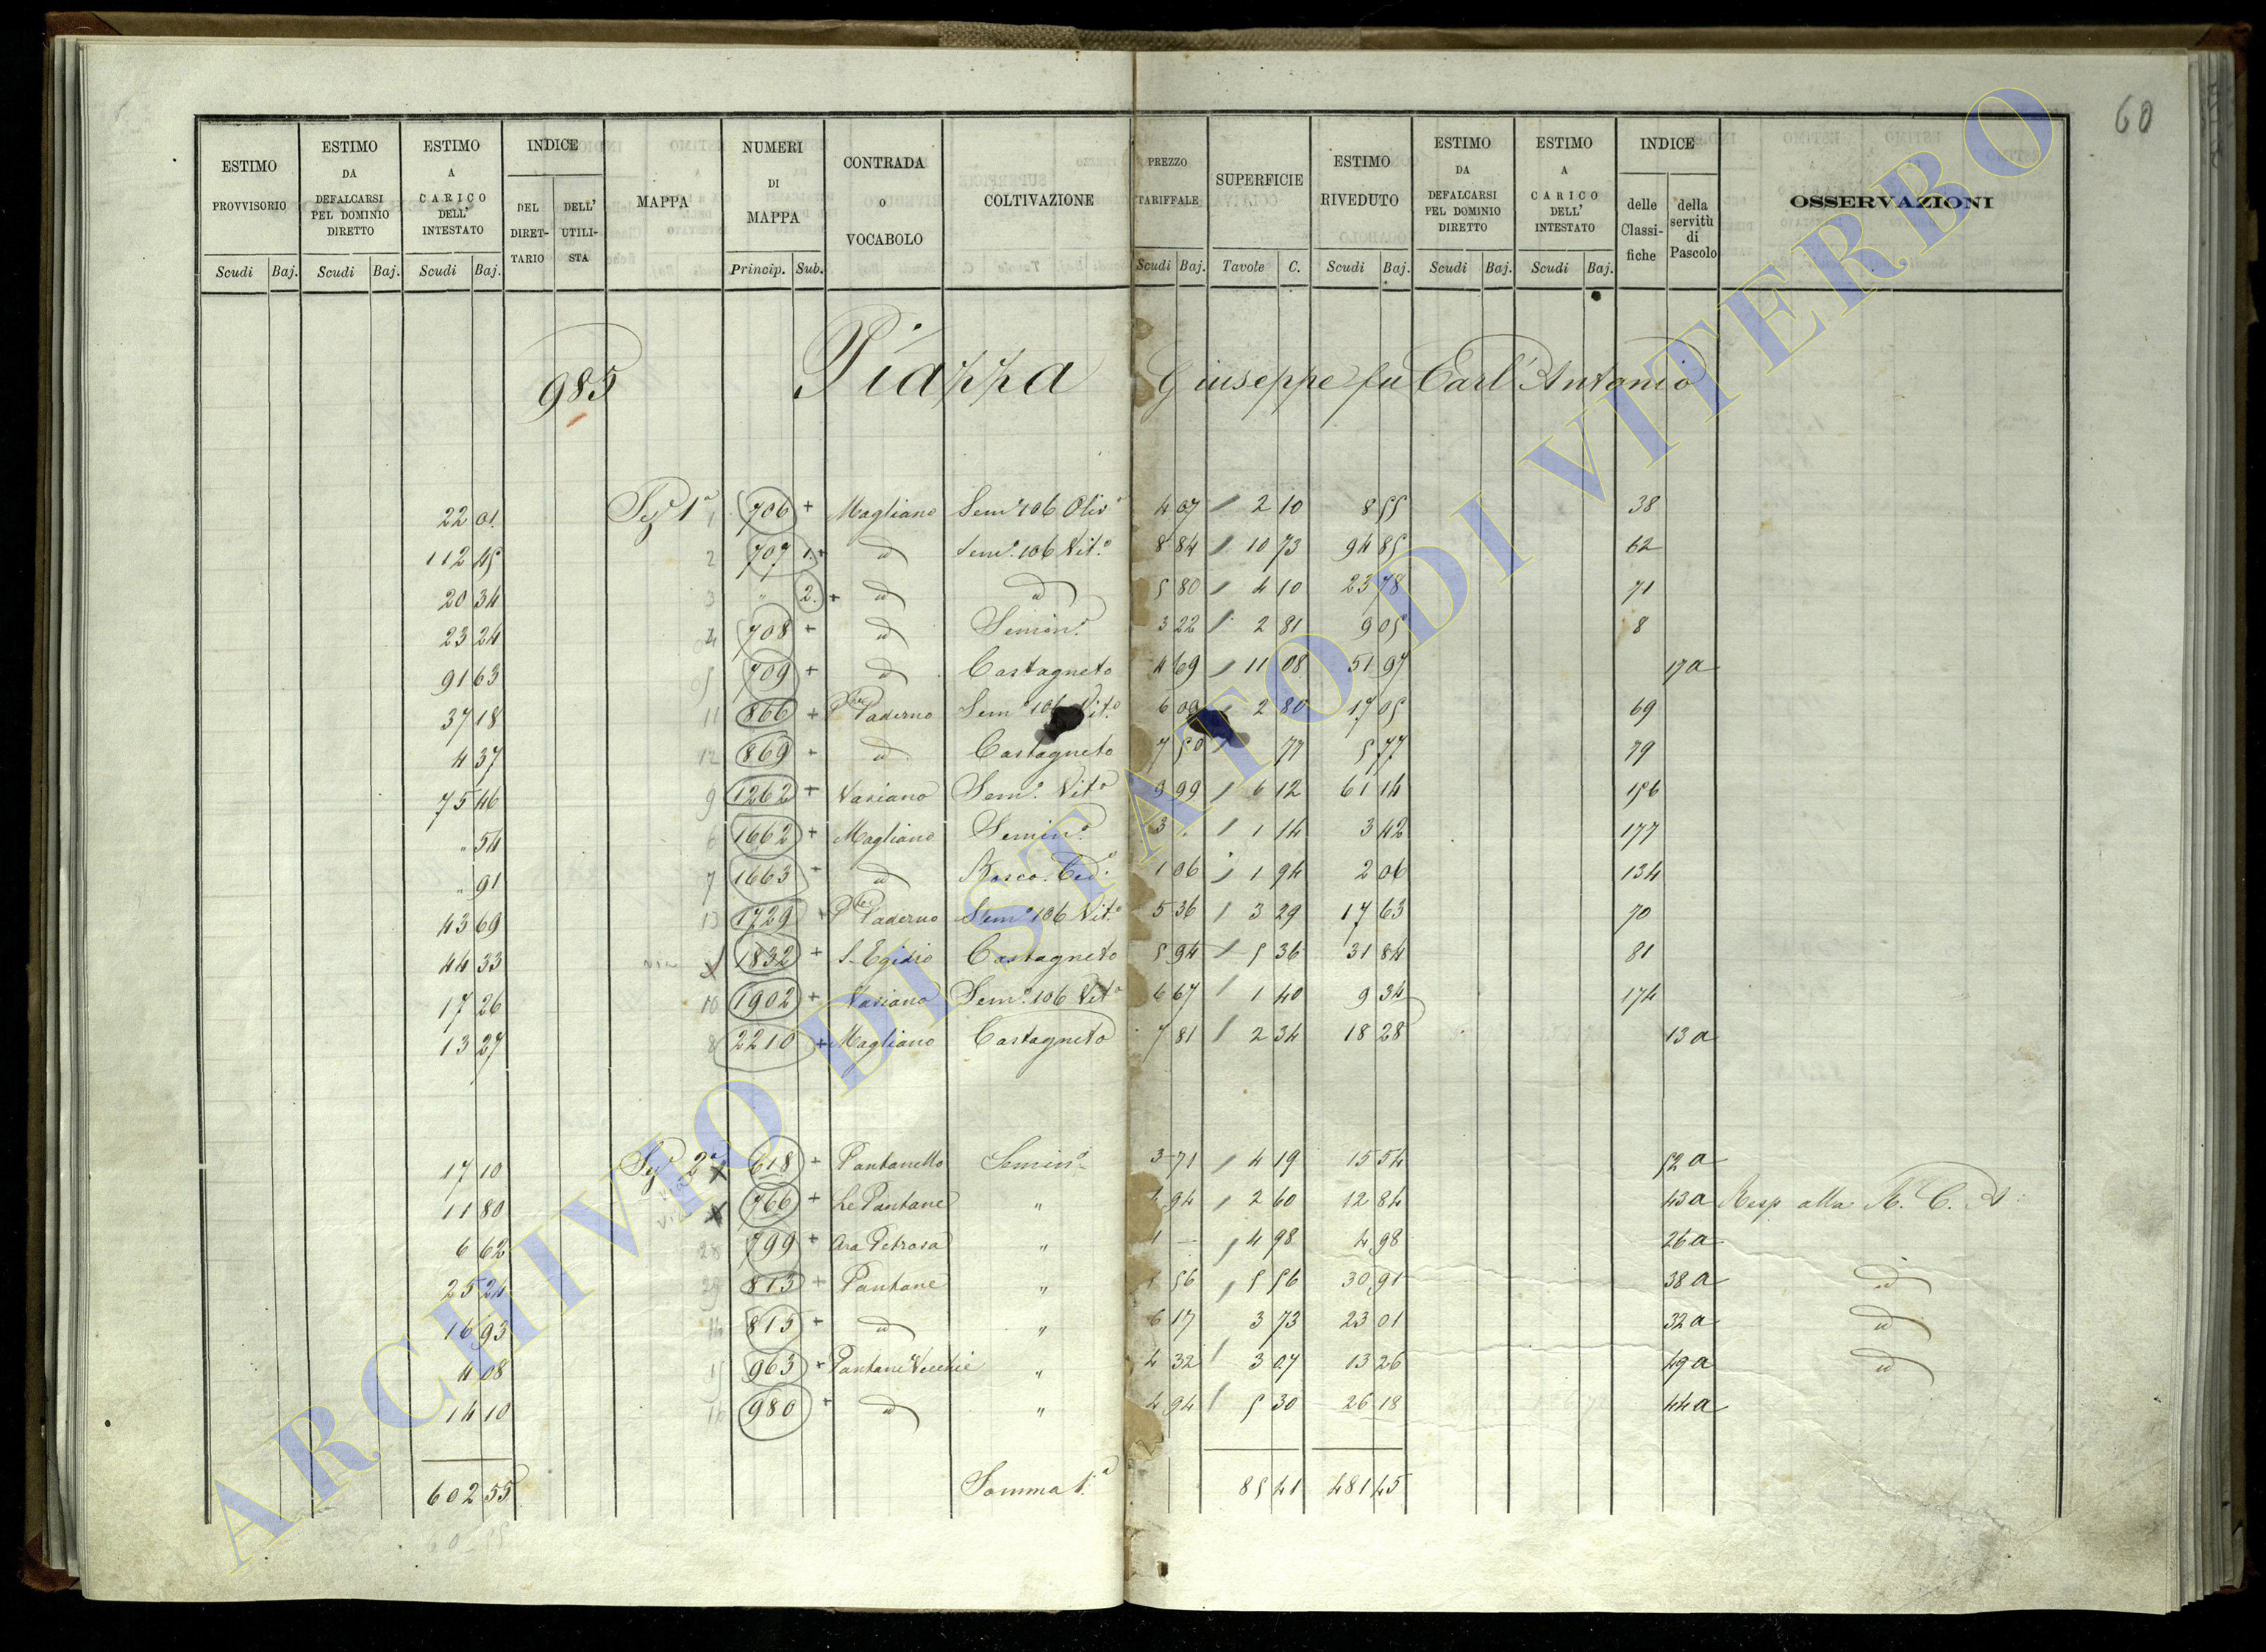 60
ESTIMO PROVVISORIO Scudi Baj.
ESTIMO DA DEFALCARSI PEL DOMINIO DIRETTO Scudi Baj.
ESTIMO A CARICO DELL' INTESTATO Scudi Baj.
INDICE DEL DIRETTARIO DELL' UTILISTA
MAPPA
NUMERI DI MAPPA Princip. Sub.
CONTRADA O VOCABOLO
COLTIVAZIONE
PREZZO TARIFFALE Scudi Baj.
SUPERFICIE Tavole C.
ESTIMO RIVEDUTO Scudi Baj.
ESTIMO DA DEFALCARSI PEL DOMINIO DIRETTO Scudi Baj.
ESTIMO A CARICO DELL' INTESTATO Scudi Baj.
INDICE delle Classifiche della servitù di Pascolo
OSSERVAZIONI
985 Piazza Giuseppe fu Carl'Antonio
22 01 Sez. 1ª 1 706 + Magliano Sem° 106 Oliv° 4 07 2 10 8 55 38
112 45 2 707 1 + id Sem° 106 Vit.° 8 84 10 73 94 85 62
20 34 3 " 2 + id id 5 80 4 10 23 78 71
23 24 4 708 + id Semin° 3 22 2 81 9 05 8
91 63 5 709 + id Castagneto 4 69 11 08 51 97 17a
37 18 11 866 + Paderno Sem° 106 Vit.° 6 09 2 80 17 05 69
4 37 12 869 + id Castagneto 7 50 77 5 77 79
75 46 9 1262 + Variano Sem° Vit° 9 99 6 12 61 14 156
" 54 6 1662 + Magliano Semin° 3 . 1 14 3 42 177
" 91 7 1663 + id Bosco Ced° 1 06 1 94 2 06 134
43 69 13 1729 + Paderno Sem° 106 Vit.° 5 36 3 29 17 63 70
44 33 1832 + S. Egidio Castagneto 5 94 5 36 31 84 81
17 26 10 1902 + Variano Sem° 106 Vit° 6 67 1 40 9 34 174
13 27 8 2210 + Magliano Castagneto 7 81 2 34 18 28 13a
17 10 Sez. 2ª 618 + Pantanello Semin° 3 71 4 19 15 54 52a
11 80 766 + Le Pantane " 4 94 2 60 12 84 43a Resp alla R. C. A.
6 62 28 799 + Ara Petrosa " 1 – 4 98 4 98 26a
25 24 29 813 + Pantane " 5 56 5 56 30 91 38a id
16 93 14 815 + id " 6 17 3 73 23 01 32a id
4 08 15 963 + Pantane Vecchie " 4 32 3 07 13 26 49a id
14 10 16 980 + id " 4 94 5 30 26 18 44a
602 55 Somma 1ª 85 41 481 45
ARCHIVIO DI STATO DI VITERBO